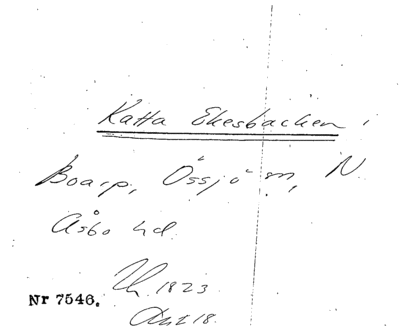 Katta Ekesbacken
Boarp, Össjö sn, N
Åsbo hd.
1823
Nr 7546.